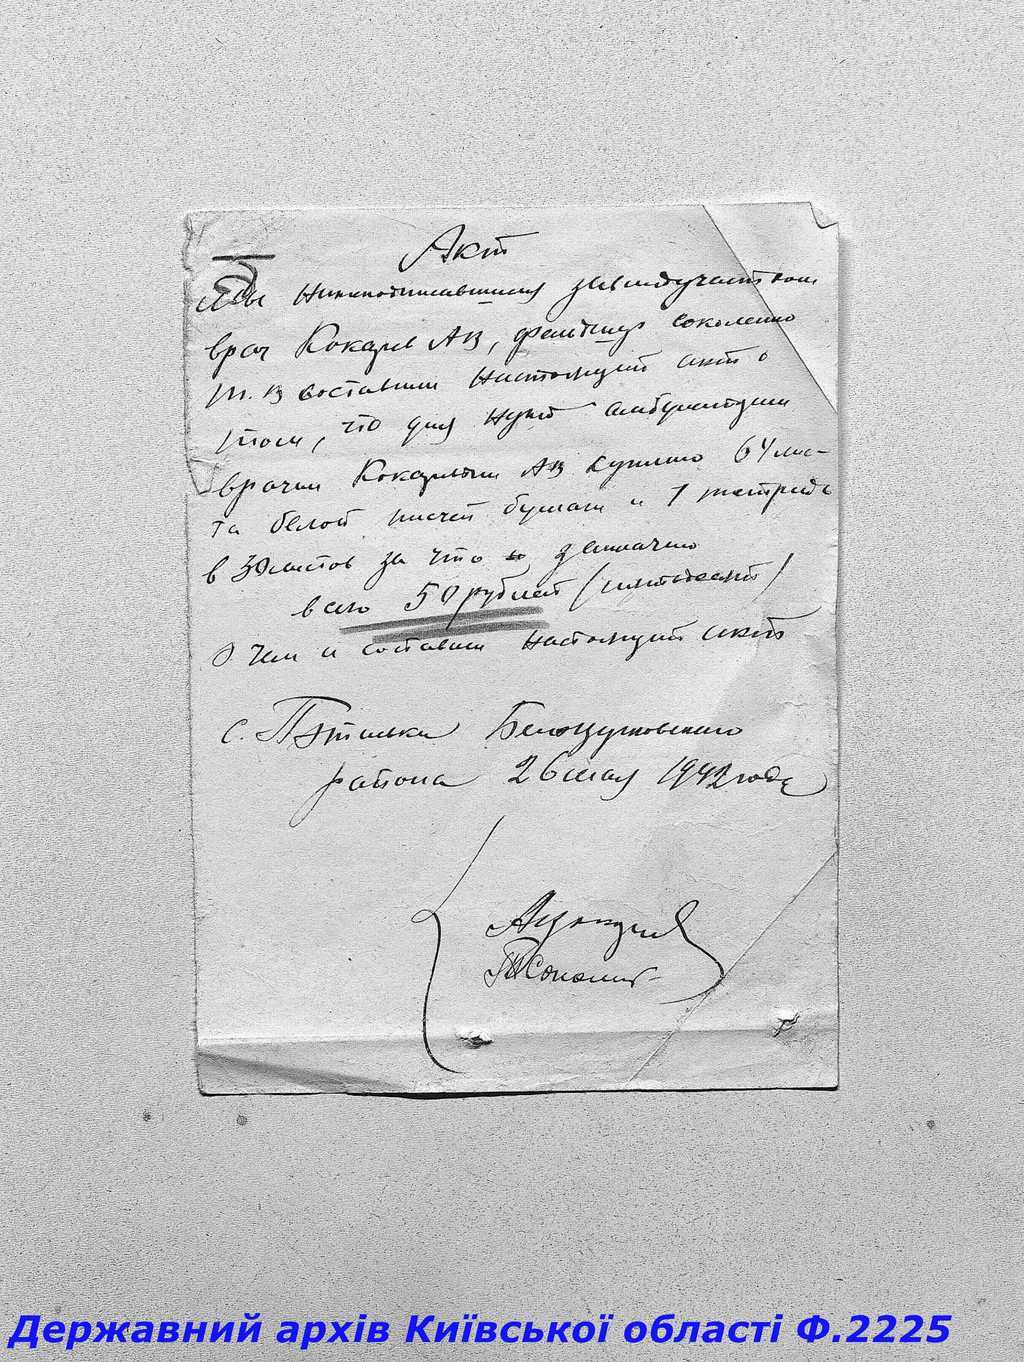 Акт
Мы нижеподписавшиеся завмедучастком
врач Кокарев АВ, фельдшер Соколенко
Т. В составили настоящий акт о
том, что для нужд амбулатории
врачем Кокаревым АВ куплено 64 лис-
та белой писчей бумаги и 1 тетрадь
в 30 листов за что заплачено
всего 50 рублей (пятьдесят)
О чем и составили настоящий акт
с. Белоцерковского
района 26 мая 1942 года
Державний архів Київської області Ф.2225